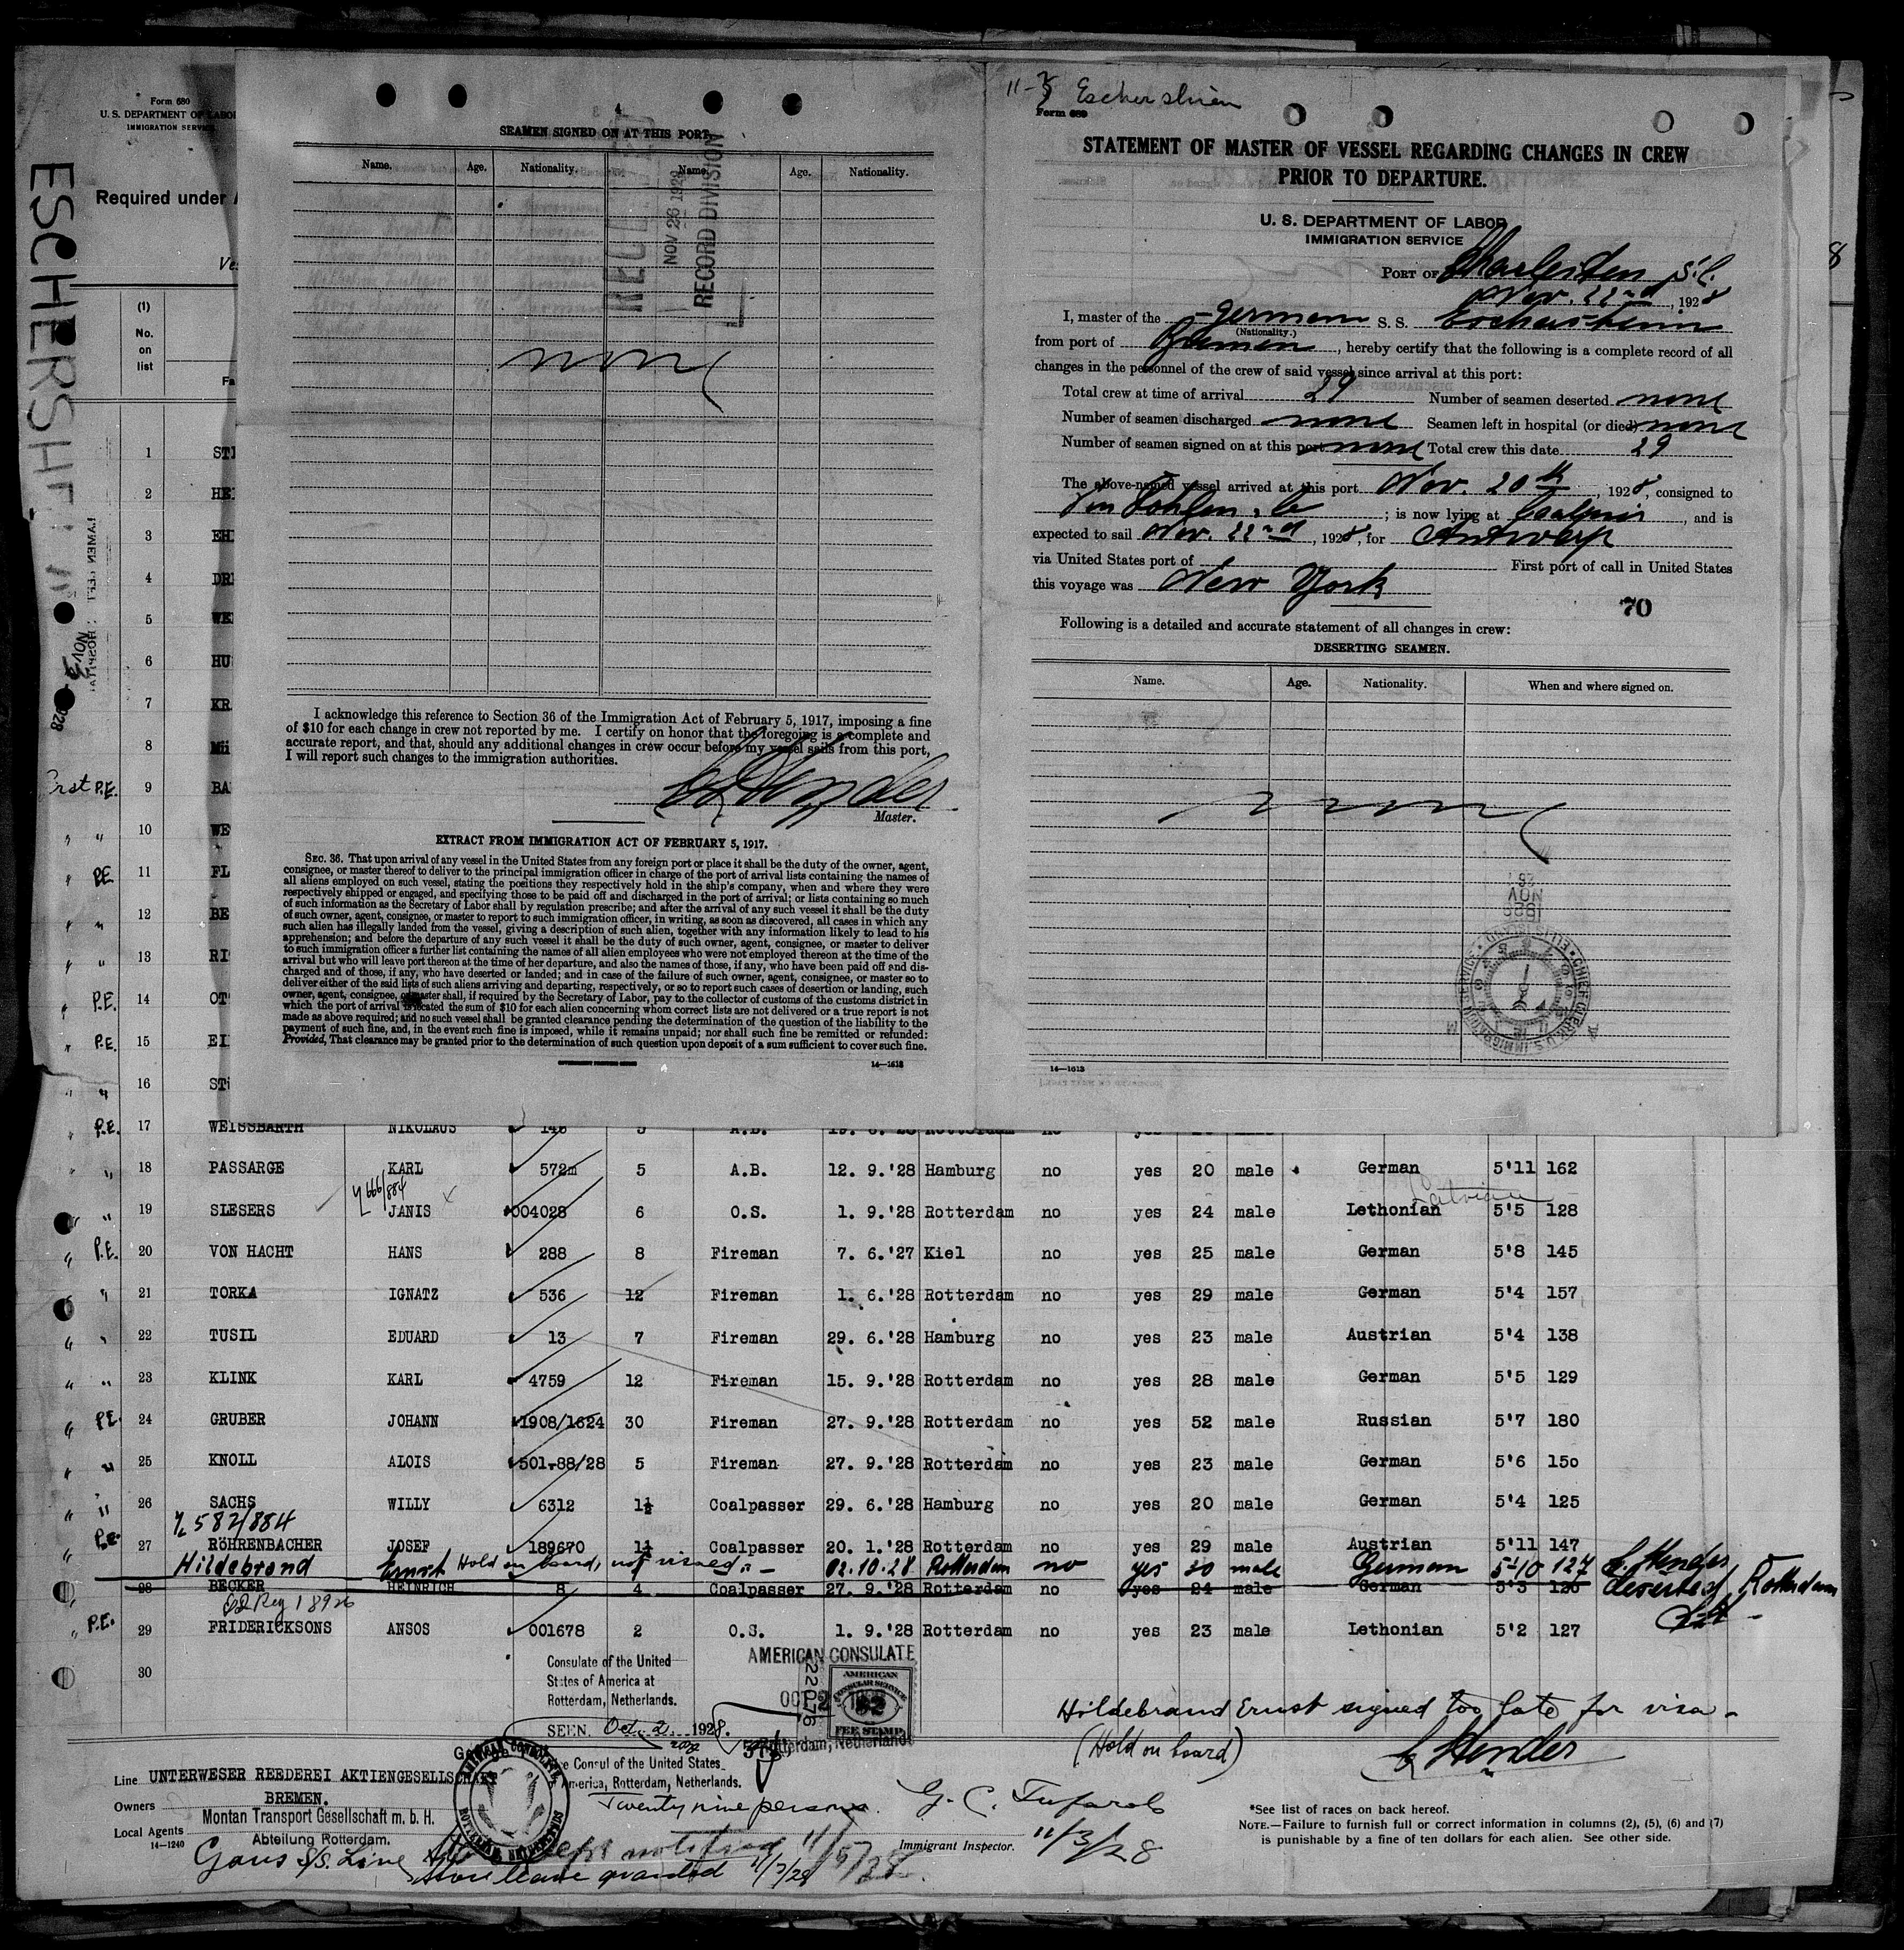 Form 680
U. S. DEPARTMENT OF LABOR
IMMIGRATION SERVICE
ESCHERSHEIM
Required under
(1)
No.
on
list
1 ST
2 HE
3 EH
4 DR
5 WE
6 HU
7 KR
8 Mü
9 BA
10 WE
11 FL
12 BE
13 RI
14 OT
15 EI
16 ST
4
SEAMEN SIGNED ON AT THIS PORT.
Name. Age. Nationality. Name. Age. Nationality.
RECEIVED
NOV 26 1928
RECORD DIVISION
none
I acknowledge this reference to Section 36 of the Immigration Act of February 5, 1917, imposing a fine
of $10 for each change in crew not reported by me. I certify on honor that the foregoing is a complete and
accurate report, and that, should any additional changes in crew occur before my vessel sails from this port,
I will report such changes to the immigration authorities.
Master.
EXTRACT FROM IMMIGRATION ACT OF FEBRUARY 5, 1917.
SEC. 36. That upon arrival of any vessel in the United States from any foreign port or place it shall be the duty of the owner, agent,
consignee, or master thereof to deliver to the principal immigration officer in charge of the port of arrival lists containing the names of
all aliens employed on such vessel, stating the positions they respectively hold in the ship's company, when and where they were
respectively shipped or engaged, and specifying those to be paid off and discharged in the port of arrival; or lists containing so much
of such information as the Secretary of Labor shall by regulation prescribe; and after the arrival of any such vessel it shall be the duty
of such owner, agent, consignee, or master to report to such immigration officer, in writing, as soon as discovered, all cases in which any
such alien has illegally landed from the vessel, giving a description of such alien, together with any information likely to lead to his
apprehension; and before the departure of any such vessel it shall be the duty of such owner, agent, consignee, or master to deliver
to such immigration officer a further list containing the names of all alien employees who were not employed thereon at the time of the
arrival but who will leave port thereon at the time of her departure, and also the names of those, if any, who have been paid off and dis-
charged and of those, if any, who have deserted or landed; and in case of the failure of such owner, agent, consignee, or master so to
deliver either of the said lists of such aliens arriving and departing, respectively, or so to report such cases of desertion or landing, such
owner, agent, consignee, or master shall, if required by the Secretary of Labor, pay to the collector of customs of the customs district in
which the port of arrival is located the sum of $10 for each alien concerning whom correct lists are not delivered or a true report is not
made as above required; and no such vessel shall be granted clearance pending the determination of the question of the liability to the
payment of such fine, and, in the event such fine is imposed, while it remains unpaid; nor shall such fine be remitted or refunded:
Provided, That clearance may be granted prior to the determination of such question upon deposit of a sum sufficient to cover such fine.
14—1613
11-3
Form 689
STATEMENT OF MASTER OF VESSEL REGARDING CHANGES IN CREW
PRIOR TO DEPARTURE.
U. S. DEPARTMENT OF LABOR
IMMIGRATION SERVICE
PORT OF Charleston S.C.
Nov. 22nd, 1928
I, master of the German S. S. Eschersheim
(Nationality.)
from port of Bremen, hereby certify that the following is a complete record of all
changes in the personnel of the crew of said vessel since arrival at this port:
Total crew at time of arrival 29 Number of seamen deserted none
Number of seamen discharged none Seamen left in hospital (or died) none
Number of seamen signed on at this port none Total crew this date 29
The above-named vessel arrived at this port Nov. 20th, 1928, consigned to
; is now lying at , and is
expected to sail Nov. 22nd, 1928, for Antwerp
via United States port of First port of call in United States
this voyage was New York
70
Following is a detailed and accurate statement of all changes in crew:
DESERTING SEAMEN.
Name. Age. Nationality. When and where signed on.
none
14—1613
P.E. 17 WEISSBARTH NIKOLAUS 146 5 A.B. Rotterdam no
18 PASSARGE KARL 572m 5 A.B. 12. 9.'28 Hamburg no yes 20 male German 5'11 162
666/884 Latvian
19 SLESERS JANIS 004028 6 O.S. 1. 9.'28 Rotterdam no yes 24 male Lethonian 5'5 128
P.E. 20 VON HACHT HANS 288 8 Fireman 7. 6.'27 Kiel no yes 25 male German 5'8 145
21 TORKA IGNATZ 536 12 Fireman 1. 6.'28 Rotterdam no yes 29 male German 5'4 157
22 TUSIL EDUARD 13 7 Fireman 29. 6.'28 Hamburg no yes 23 male Austrian 5'4 138
23 KLINK KARL 4759 12 Fireman 15. 9.'28 Rotterdam no yes 28 male German 5'5 129
P.E. 24 GRUBER JOHANN 1908/1624 30 Fireman 27. 9.'28 Rotterdam no yes 52 male Russian 5'7 180
25 KNOLL ALOIS 501-88/28 5 Fireman 27. 9.'28 Rotterdam no yes 23 male German 5'6 150
26 SACHS WILLY 6312 1½ Coalpasser 29. 6.'28 Hamburg no yes 20 male German 5'4 125
582/884
P.E. 27 RöHRENBACHER JOSEF 189670 1½ Coalpasser 20. 1.'28 Rotterdam no yes 29 male Austrian 5'11 147
Hildebrand Ernst Hold on board, not visaed 02.10.28 Rotterdam no yes 30 male German 5-10 127
28 BECKER HEINRICH 8 4 Coalpasser 27. 9.'28 Rotterdam no yes 24 male German 5'3 126 deserted Rotterdam
P.E. 29 FRIDERICKSONS ANSOS 001678 2 O.S. 1. 9.'28 Rotterdam no yes 23 male Lethonian 5'2 127
30
Consulate of the United
States of America at
Rotterdam, Netherlands.
SEEN. Oct. 2. 1928.
Vice Consul of the United States
of America, Rotterdam, Netherlands.
Twenty nine persons.
AMERICAN CONSULATE
OCT 2 1928
Rotterdam, Netherlands
22076
AMERICAN
CONSULAR SERVICE
$2
FEE STAMP
Hildebrand Ernst signed too late for visa -
(Hold on board)
Line UNTERWESER REEDEREI AKTIENGESELLSCHAFT
Owners BREMEN.
Montan Transport Gesellschaft m. b. H.
Local Agents
Abteilung Rotterdam.
14-1240
S/S. Line
notified 11/5/28
Shore leave granted 11/3/28
Immigrant Inspector.
11/3/28
*See list of races on back hereof.
NOTE.—Failure to furnish full or correct information in columns (2), (5), (6) and (7)
is punishable by a fine of ten dollars for each alien. See other side.